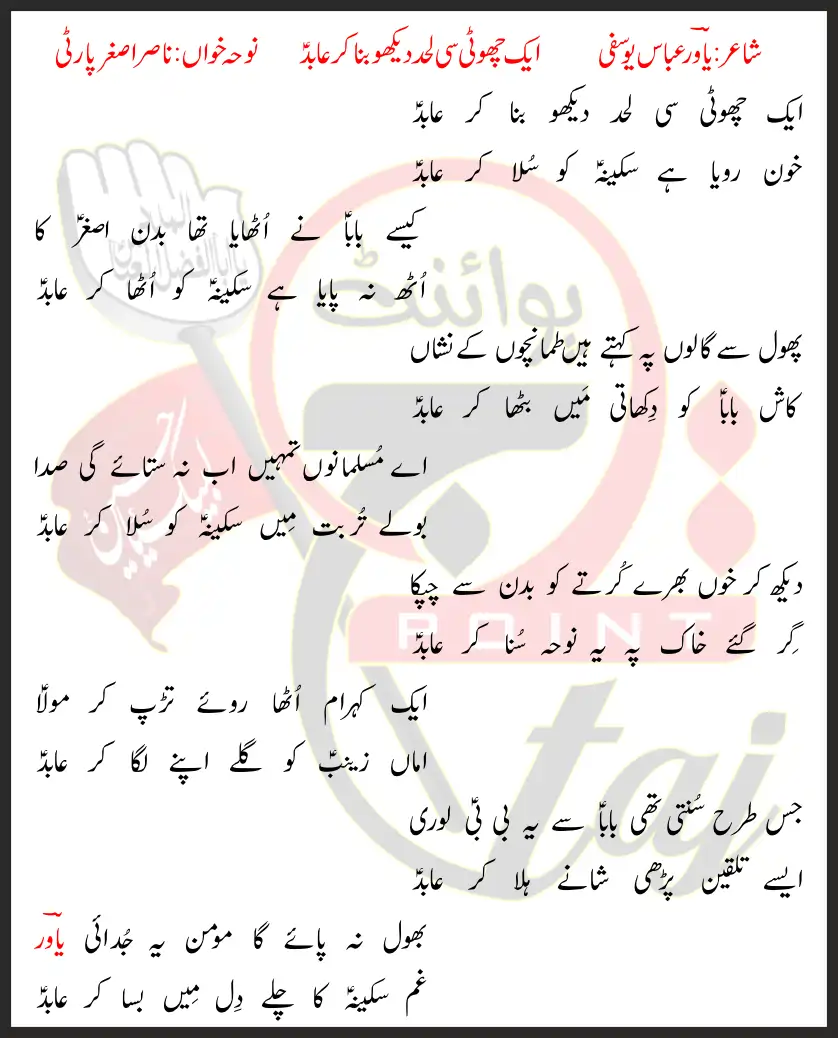 شاعر: یاور عباس یوسفی ایک چھوٹی سی لحد دیکھو بنا کر عابدؑ نوحہ خواں: ناصر اصغر پارٹی
ایک چھوٹی سی لحد دیکھو بنا کر عابدؑ
خون رویا ہے سکینہؑ کو سُلا کر عابدؑ
کیسے باباؑ نے اُٹھایا تھا بدن اصغرؑ کا
اُٹھ نہ پایا ہے سکینہؑ کو اُٹھا کر عابدؑ
پھول سے گالوں پہ کہتے ہیں طمانچوں کے نشاں
کاش باباؑ کو دِکھاتی مَیں بٹھا کر عابدؑ
اے مُسلمانوں تمہیں اب نہ ستائے گی صدا
بولے تُربت مِیں سکینہؑ کو سُلا کر عابدؑ
دیکھ کر خوں بھرے کُرتے کو بدن سے چپکا
گِر گئے خاک پہ یہ نوحہ سُنا کر عابدؑ
ایک کہرام اُٹھا روئے تڑپ کر مولاؑ
اماں زینبؑ کو گلے اپنے لگا کر عابدؑ
جس طرح سُنتی تھی باباؑ سے یہ بی بیؑ لوری
ایسے تلقین پڑھی شانے ہلا کر عابدؑ
بھول نہ پائے گا مومن یہ جُدائی یاور
غم سکینہؑ کا چلے دِل مِیں بسا کر عابدؑ
پوائنٹ
POINT
taj
لبیک یا حسین